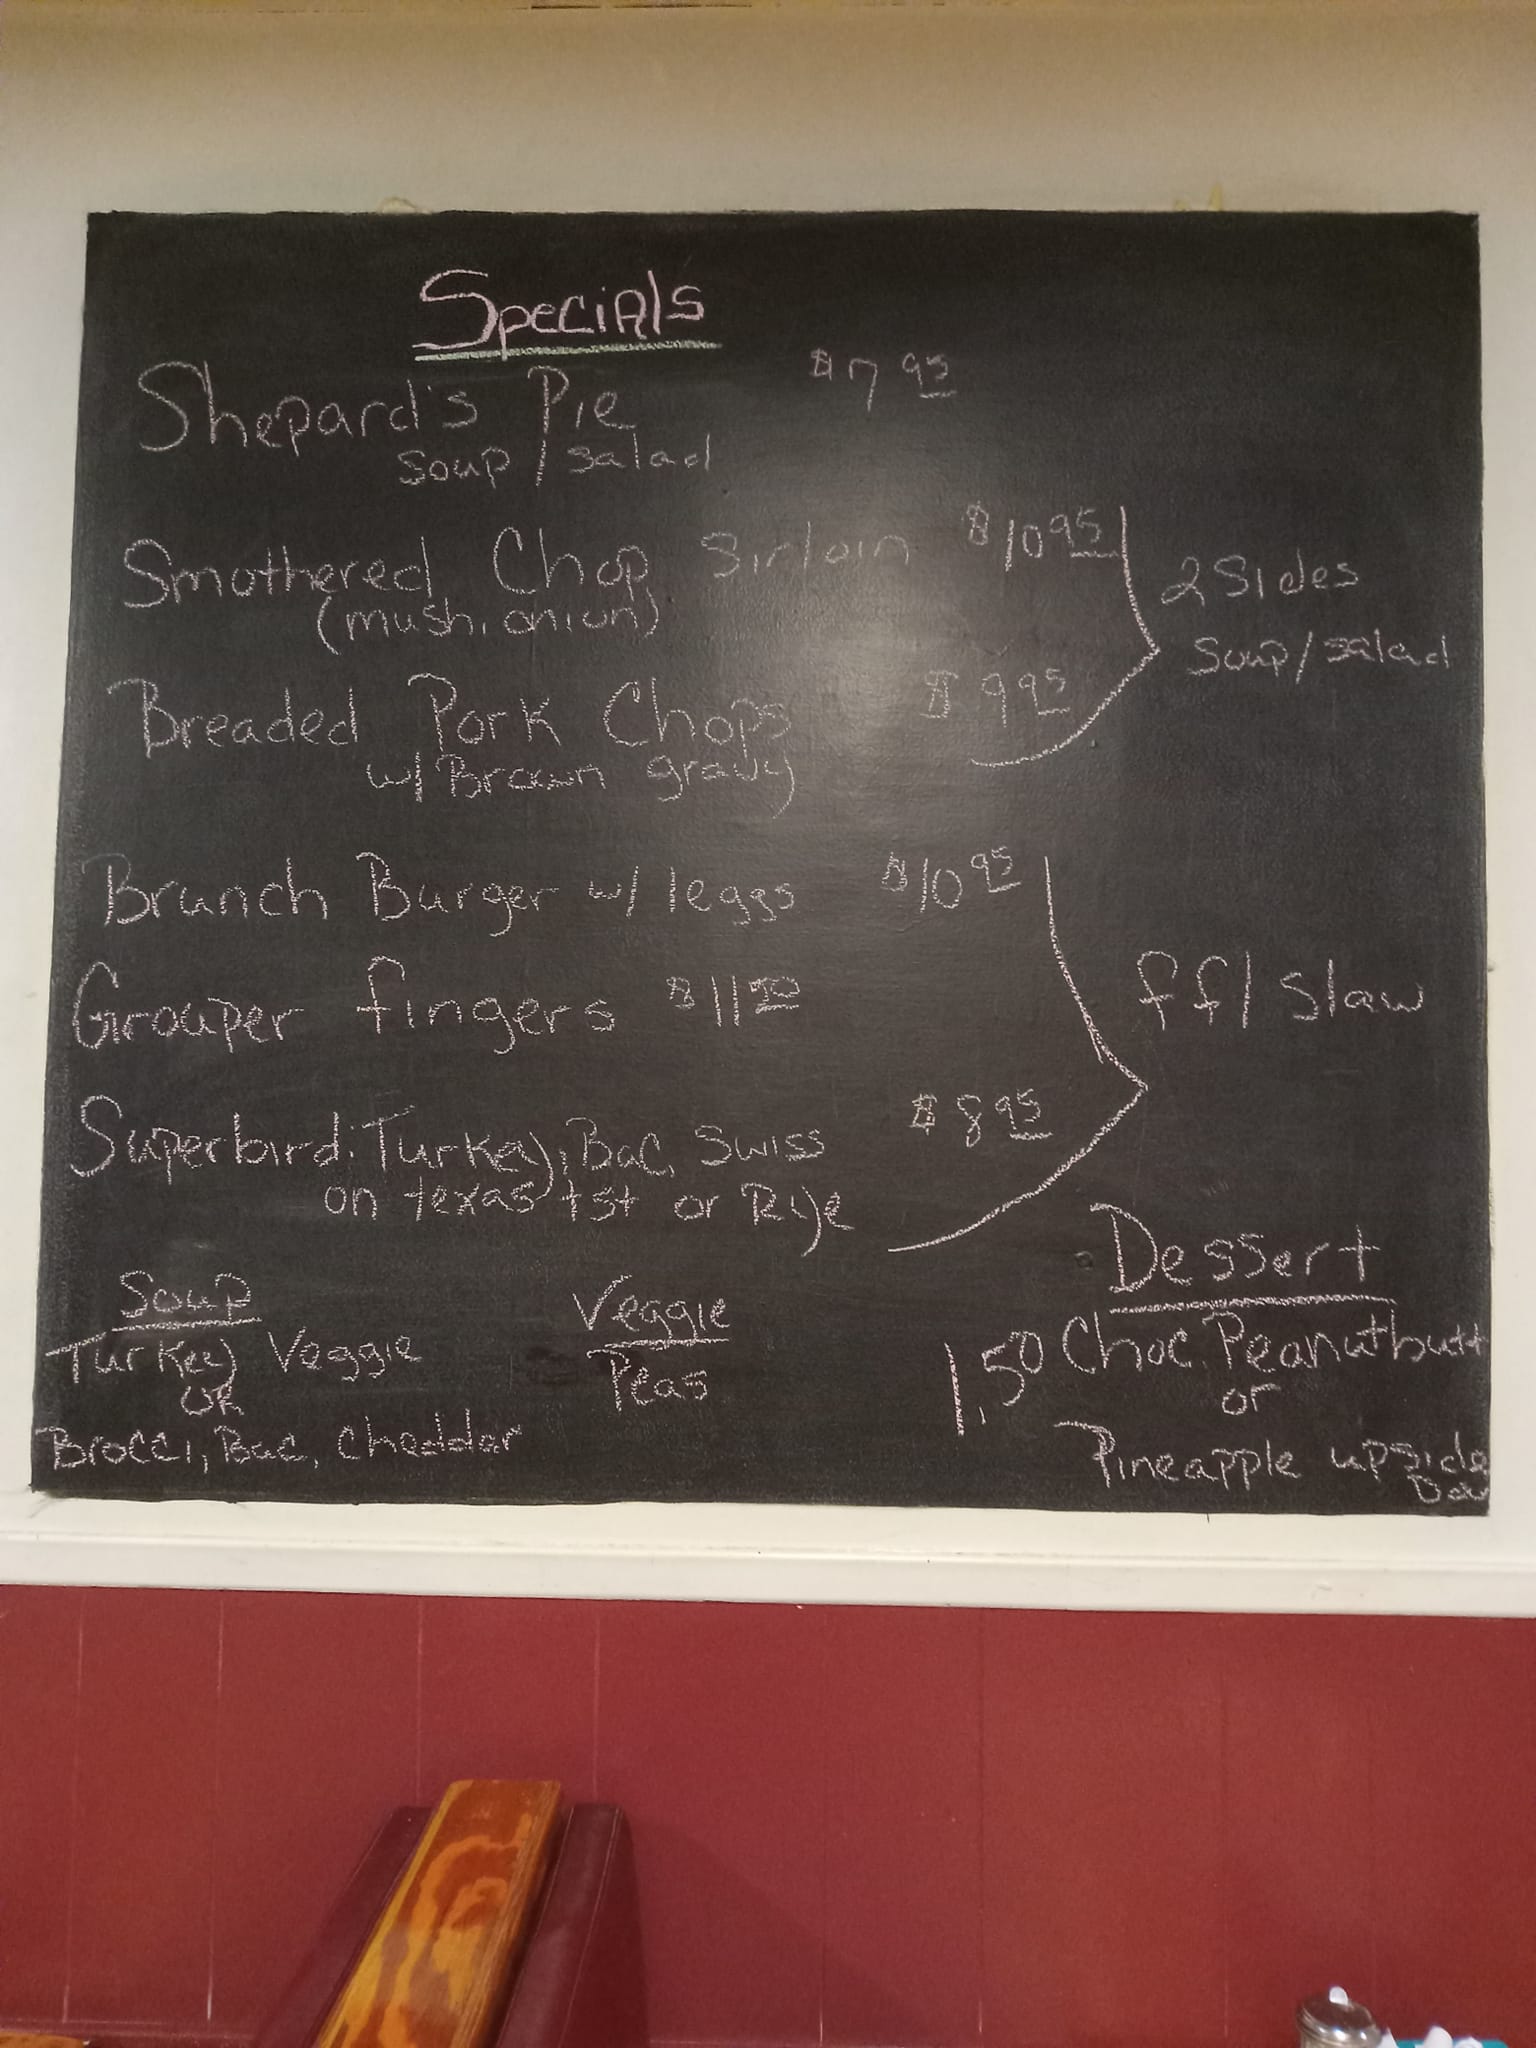 Specials
Shepard's Pie $7 95
soup / salad
Smothered Chop Sirloin $10 95
(mush, onion)
2 Sides
Soup / salad
Breaded Pork Chops $9 95
w/ Brown gravy
Brunch Burger w/ 1eggs $10 95
Grouper fingers $11 50
ff / Slaw
Superbird: Turkey, Bac, Swiss $8 95
on texas tst or Rye
Soup
Turkey Veggie
OR
Brocci, Bac, Cheddar
Veggie
Peas
Dessert
1.50 Choc. Peanutbutt
or
Pineapple upside
Dow